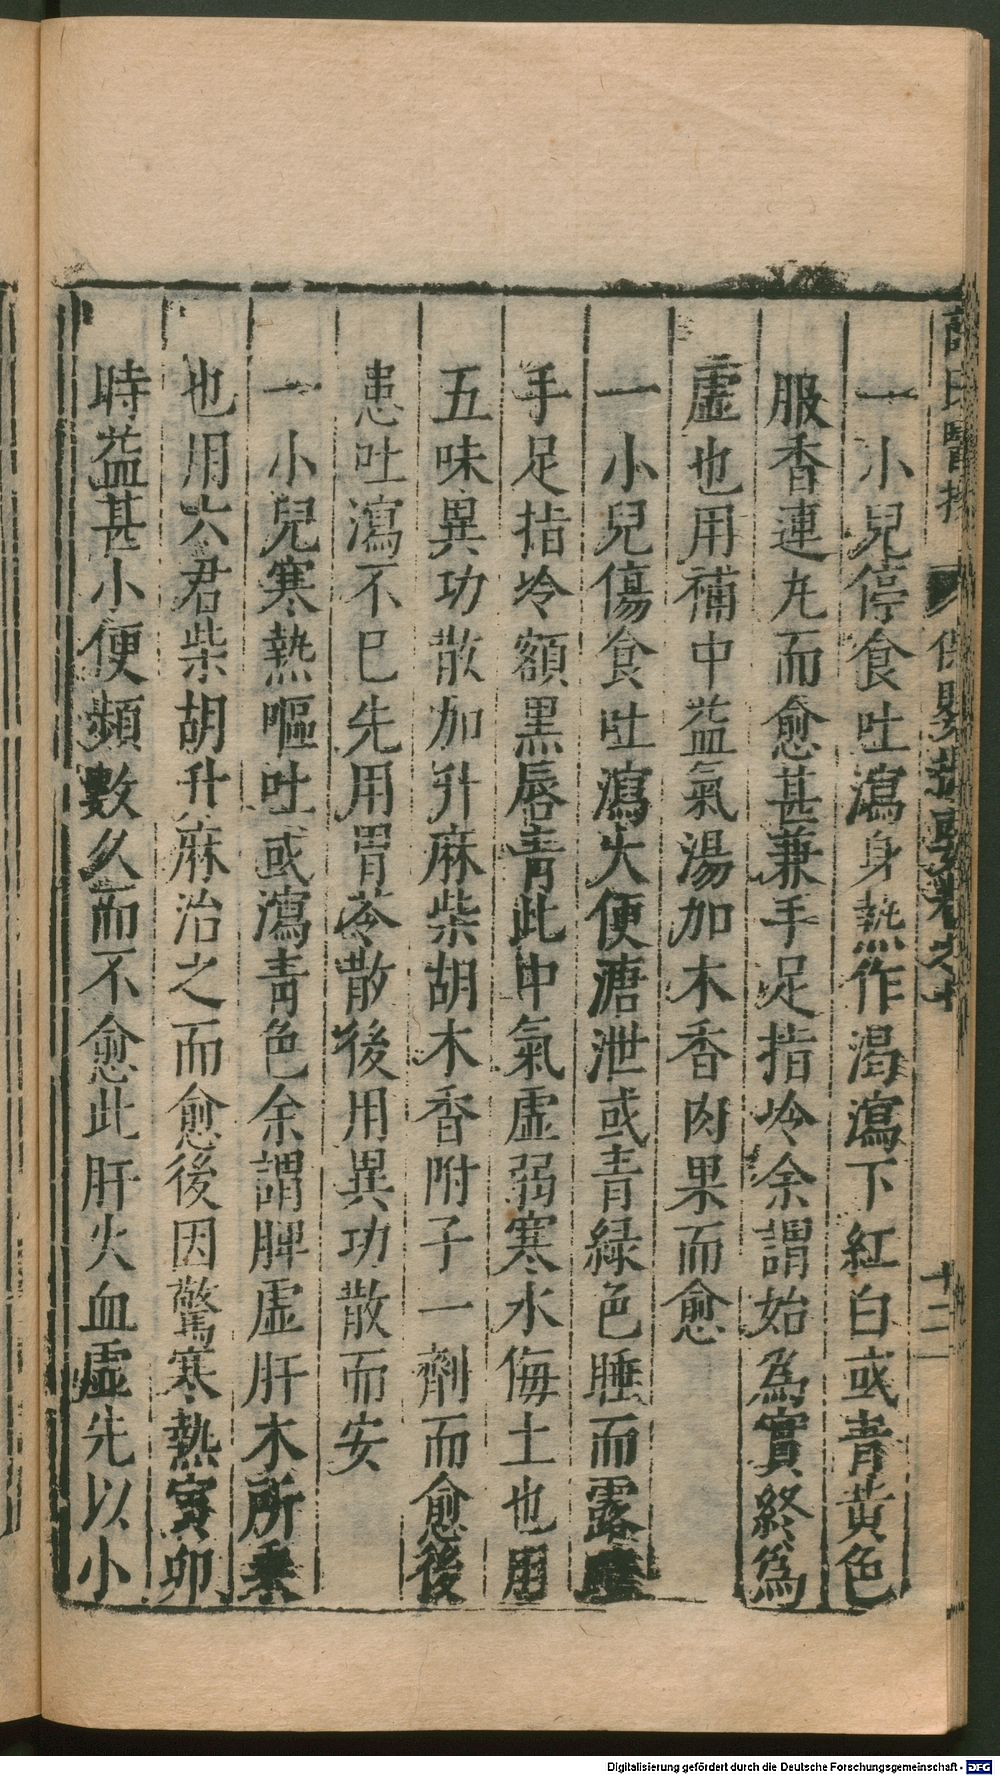 一小兒停食吐瀉身熱作渴瀉下紅白或青黄色
服香連丸而愈甚兼手足指冷余謂始為實終為
虛也用補中益氣湯加木香肉果而愈
一小兒傷食吐瀉大便溏泄或青緑色睡而露睛
手足指冷額黒唇青此中氣虛弱寒水侮土也用
五味異功散加升麻柴胡木香附子一劑而愈後
患吐瀉不已先用胃苓散後用異功散而安
一小兒寒熱嘔吐或瀉青色余謂脾虛肝木所乗
也用六君柴胡升麻治之而愈後因驚寒熱寅卯
時益甚小便頻數久而不愈此肝火血虛先以小
氏醫
保嬰撮要卷之十
十二
Digitalisierung gefördert durch die Deutsche Forschungsgemeinschaft - DFG